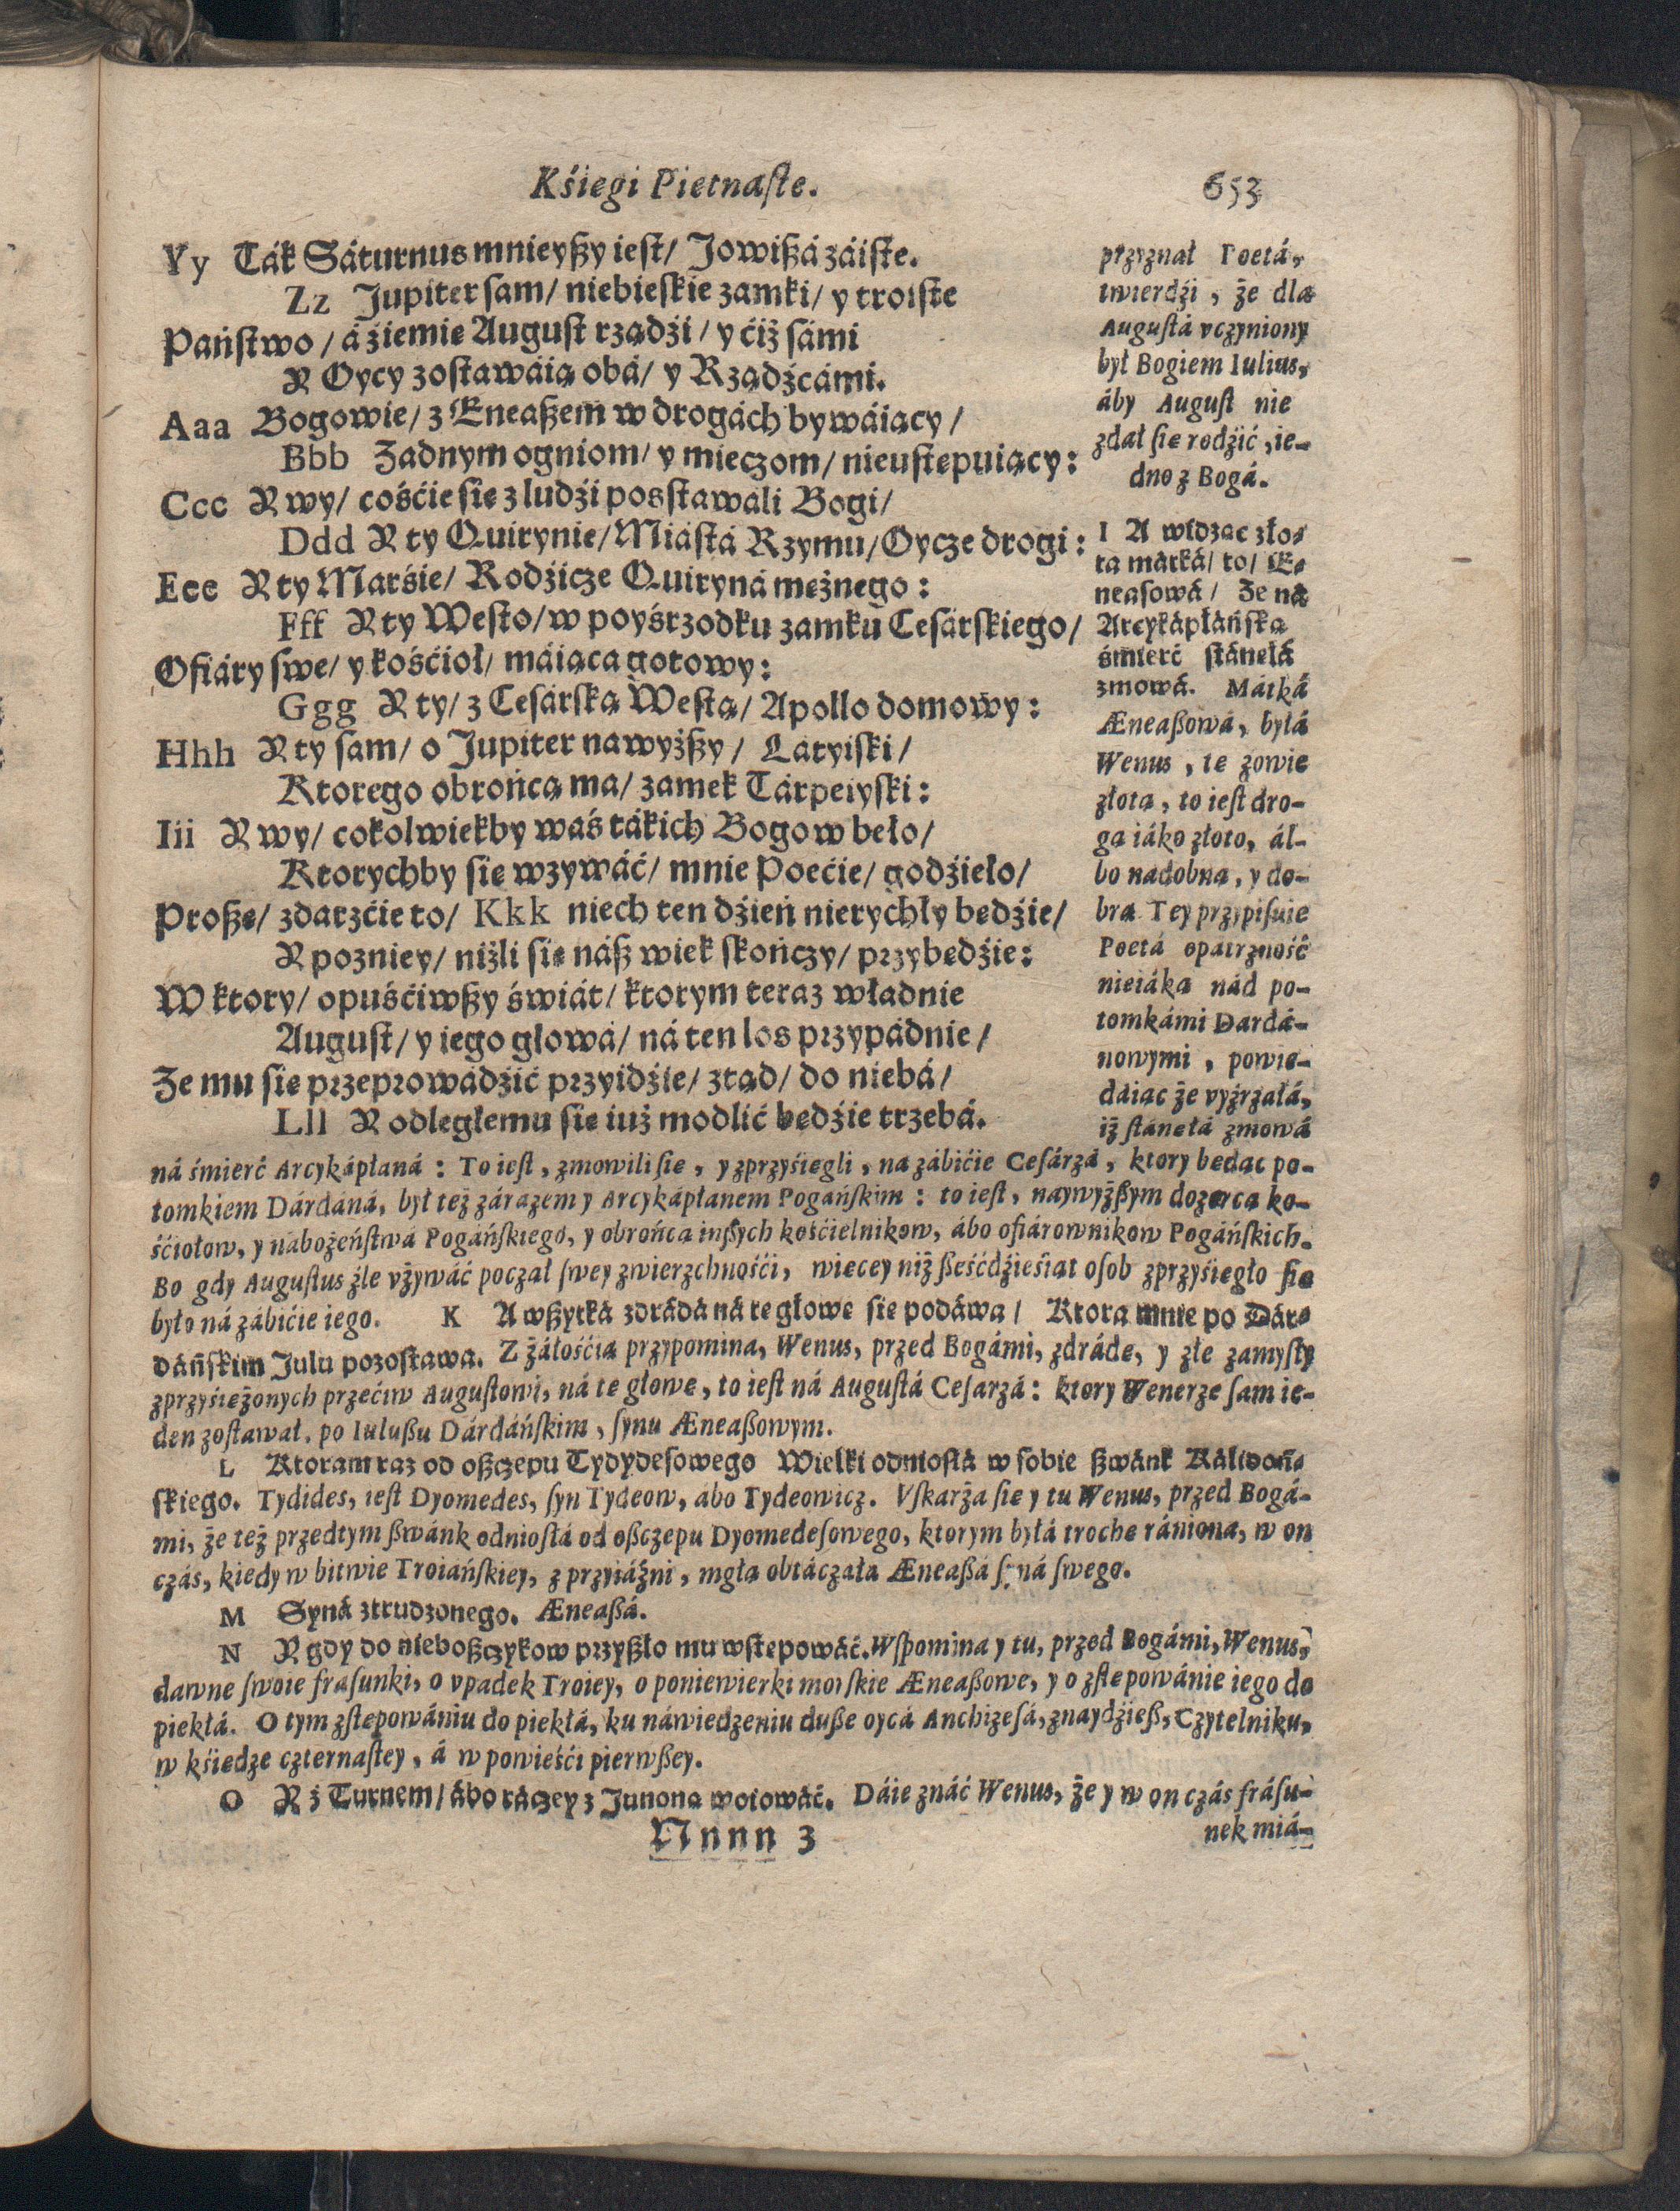 Kśiegi Pietnaſte.
653
Yy Ták Sáturnus mnieyßy ieſt/ Jowißá záiſte.
Zz Jupiter ſam/ niebieſkie zamki/ y troiſte
Páńſtwo/ á źiemie Auguſt rządźi/ y ćiż ſámi
Y Oycy zoſtawáią obá/ y Rządźcámi.
Aaa Bogowie/ z Eneaßem w drogách bywáiący/
Bbb Żadnym ogniom/ y mieczom/ nieuſtepuiący:
Ccc Y wy/ cośćie ſie z ludźi posſtawali Bogi/
Ddd Y ty Quirynie/ Miáſtá Rzymu/ Oycze drogi:
Eee Y ty Marśie/ Rodźicze Quiryná meżnego:
Fff Y ty Weſto/ w poyśrzodku zamku Ceſárſkiego/
Ofiáry ſwe/ y kośćioł/ máiąca gotowy:
Ggg Y ty/ z Ceſárſką Weſtą/ Apollo domowy:
Hhh Y ty ſam/ o Jupiter nawyżßy/ Latyiſki/
Ktorego obrońcą ma/ zamek Tárpeiyſki:
Iii Y wy/ cokolwiekby waś tákich Bogow beło/
Ktorychby ſie wzywáć/ mnie Poećie/ godźieło/
Proße/ zdarzćie to/ Kkk niech ten dźień nierychły bedźie/
Y pozniey/ niżli ſie náß wiek ſkończy/ przybedźie:
W ktory/ opuśćiwßy świát/ ktorym teraz władnie
Auguſt/ y iego głowá/ ná ten los przypádnie/
Że mu ſie przeprowádźić przyidźie/ ztąd/ do niebá/
Lll Y odległemu ſie iuż modlić bedźie trzebá.
przyznał Poetá,
twierdźi, że dla
Auguſtá vczyniony
był Bogiem Iulius,
áby Auguſt nie
zdał ſie rodźić, ie-
dno z Bogá.
I A widząc zło-
ta mátká/ to/ E-
neaſowá/ Że ná
Arcykápłáńſka
śmierć ſtánełá
zmowá. Mátká
Æneaßowá, byłá
Wenus, te zowie
złota, to ieſt dro-
ga iáko złoto, ál-
bo nadobna, y do-
bra. Tey przypiſuie
Poetá opátrzność
nieiáka nád po-
tomkámi Dardá-
nowymi, powie-
dáiac że vyźrzałá,
iż ſtánełá zmowá
ná śmierć Arcykápłaná: To ieſt, zmowili ſie, y zprzyśiegli, na zábićie Ceſárzá, ktory bedac po-
tomkiem Dárdáná, był też zárazem y Arcykápłanem Pogáńſkim: to ieſt, naywyżßym dozorca ko-
śćiołow, y nabożeńſtwá Pogáńſkiego, y obrońca inßych kośćielnikow, ábo ofiárownikow Pogáńſkich.
Bo gdy Auguſtus źle vżywáć poczał ſwey zwierzchnośći, wiecey niż ßeśćdźieśiat oſob zprzyśiegło ſie
było ná zábićie iego. K A wßytká zdrádá ná te głowe ſie podáwa/ Ktora mnie po Dár-
dáńſkim Julu pozoſtawa. Z żáłośćia przypomina, Wenus, przed Bogámi, zdráde, y złe zamyſły
zprzyśieżonych przećiw Auguſtowi, ná te głowe, to ieſt ná Auguſtá Ceſarzá: ktory Wenerze ſam ie-
den zoſtawał, po Iulußu Dárdáńſkim, ſynu Æneaßowym.
L Ktoram raz od oßczepu Tydydeſowego Wielki odnioſłá w ſobie ßwánk Kálidoń-
ſkiego. Tydides, ieſt Dyomedes, ſyn Tydeow, ábo Tydeowicz. Vſkarża ſie y tu Wenus, przed Bogá-
mi, że też przedtym ßwánk odnioſłá od oßczepu Dyomedeſowego, ktorym byłá troche rániona, w on
czás, kiedy w bitwie Troiáńſkiey, z przyiáźni, mgła obtáczała Æneaßá ſyná ſwego.
M Syná ztrudzonego. Æneaßá.
N Y gdy do nieboßczykow przyßło mu wſtepowáć. Wſpomina y tu, przed Bogámi, Wenus,
dawne ſwoie fraſunki, o vpadek Troiey, o poniewierki morſkie Æneaßowe, y o zſtepowánie iego do
piekłá. O tym zſtepowániu do piekłá, ku náwiedzeniu duße oycá Anchizeſá, znaydźieß, Czytelniku,
w kśiedze czternaſtey, á w powieśći pierwßey.
O Y z Turnem/ ábo ráczey z Junona woiowáć. Dáie znáć Wenus, że y w on czás fráſu-
Nnnn 3
nek miá-